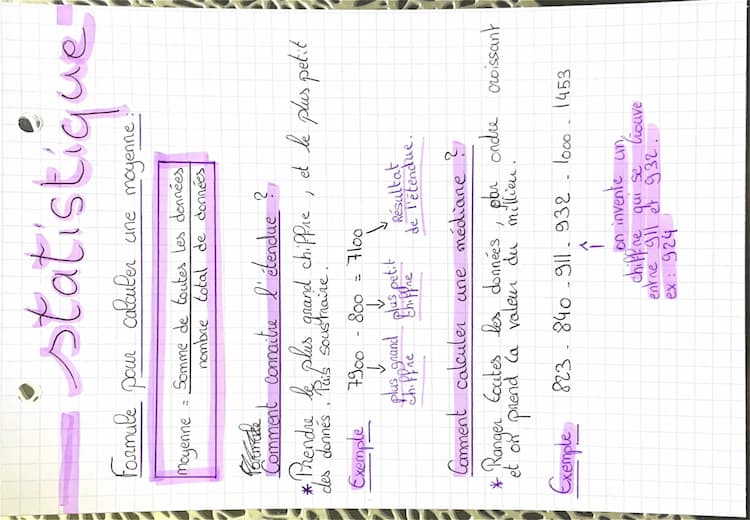 statistique
Formule pour calculer une moyenne:
moyenne = Somme de toutes les données
nombre total de données
Formule
Comment connaitre l'étendue ?
* Prendre le plus grand chiffre, et le plus petit
des donnés. Puis soustraire.
Exemple 7900 - 800 = 7100
plus grand chiffre
plus petit chiffre
Résultat de l'étendue.
Comment calculer une médiane ?
* Ranger toutes les données, par ordre croissant
et on prend la valeur du millieu.
Exemple 823 - 840 - 911 - 932 - 1000 - 1453
on invente un
chiffre qui se trouve
entre 911 et 932.
ex : 924